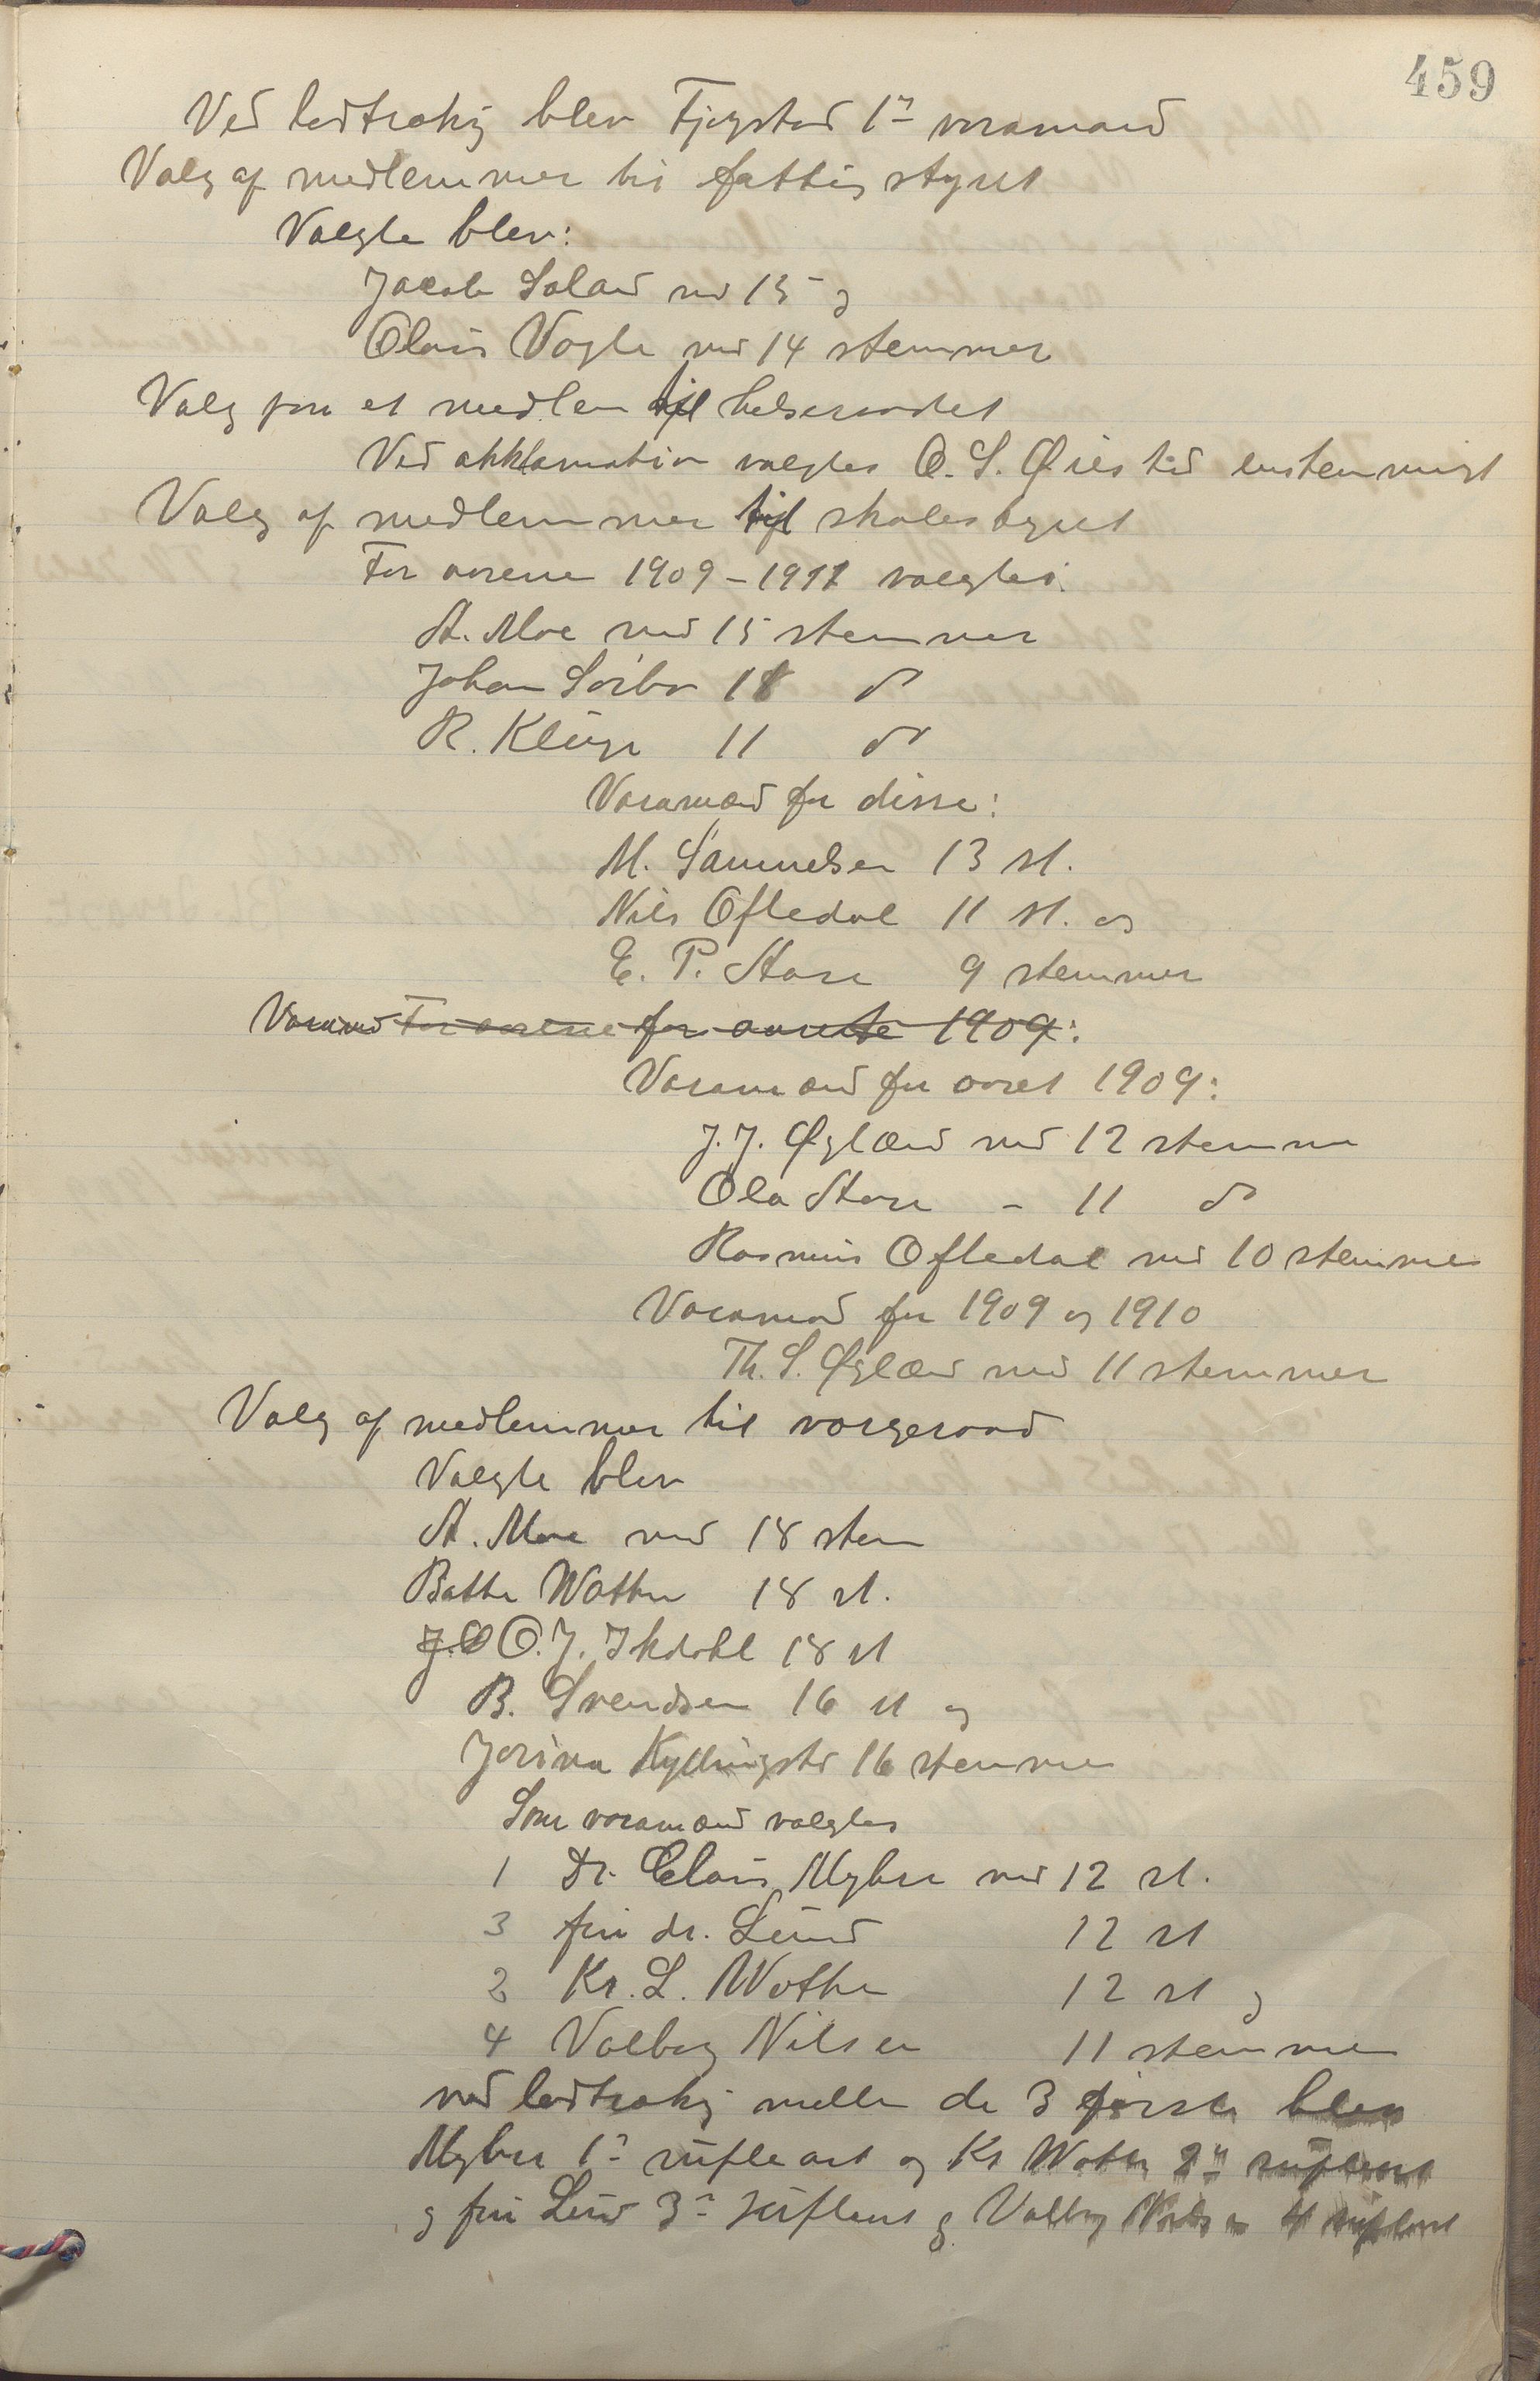 459
Ved lodtrækng blev Fjogstad 1ste varamand
Valg af medlemmer til fattigstyret
Valgte blev:
Jacob Soland med 15 og
Olaus Vagle med 14 stemmer
Valg paa et medlem til helseraadet
Ved akklamation valgtes O. S. Øiestad enstemmigt
Valg af medlemmer til skolestyret
For aarene 1909-1911 valgtes:
A. Moe med 15 stemmer
Johan Sørbø 18 do
R. Kluge 11 do
Varamænd for disse:
M. Samuelsen 13 st.
Nils Oftedal 11 st. og
E. P. Hove 9 stemmer
Varamænd For aarene for aarete 1909:
Varamænd for aaret 1909:
J. J. Øglænd med 12 stemmer
Ola Hove - 11 do
Rasmus Oftedal med 10 stemmer
Varamænd for 1909 og 1910
Th. S. Øglænd med 11 stemmer
Valg af medlemmer til vargeraad
Valgte blev
A. Moe med 18 stem
Wathne 18 st.
J.O O. J. Ikdahl 18 st
B. Svendsen 16 st og
Jorina Kyllingstd 16 stemmer
Som varamænd valgtes
1 Dr. Claus Myhre med 12 st.
3 fru dr. Lund 12 st
2 Kr. L. Wathne 12 st og
4 Valborg Nilsen 11 stemmer
ved lodtrækng mellem de 3 første blev
Myhre 1ste supleant og Kr Wathne 2den supleant
og fru Lund 3die supleant og Valborg Nilsen 4 supleant